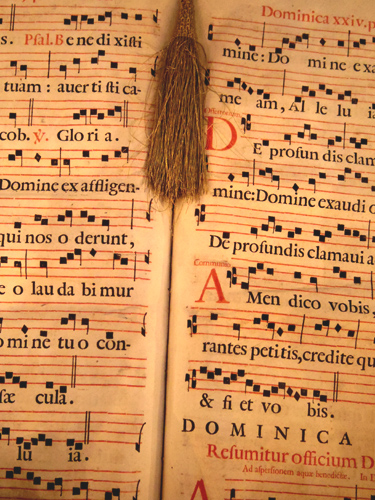 s. Psal. B e ne di xisti
tuam : auer ti sti ca-
cob. ꝟ. Glo ri a.
Domine ex affligen-
qui nos o derunt,
e o lau da bi mur
o mi ne tu o con-
sæ cula.
lu ia.
Dominica xxiv. p
mine : Do mi ne exa
me am, Al le lu i
Offertorium
D E profun dis clam
mine: Domine exaudi o
De profundis clamaui a
Communio
A Men dico vobis,
rantes petitis, credite qu
& fi et vo bis.
DOMINICA
Resumitur officium D
Ad aspersionem aquæ benedictæ. In D
A